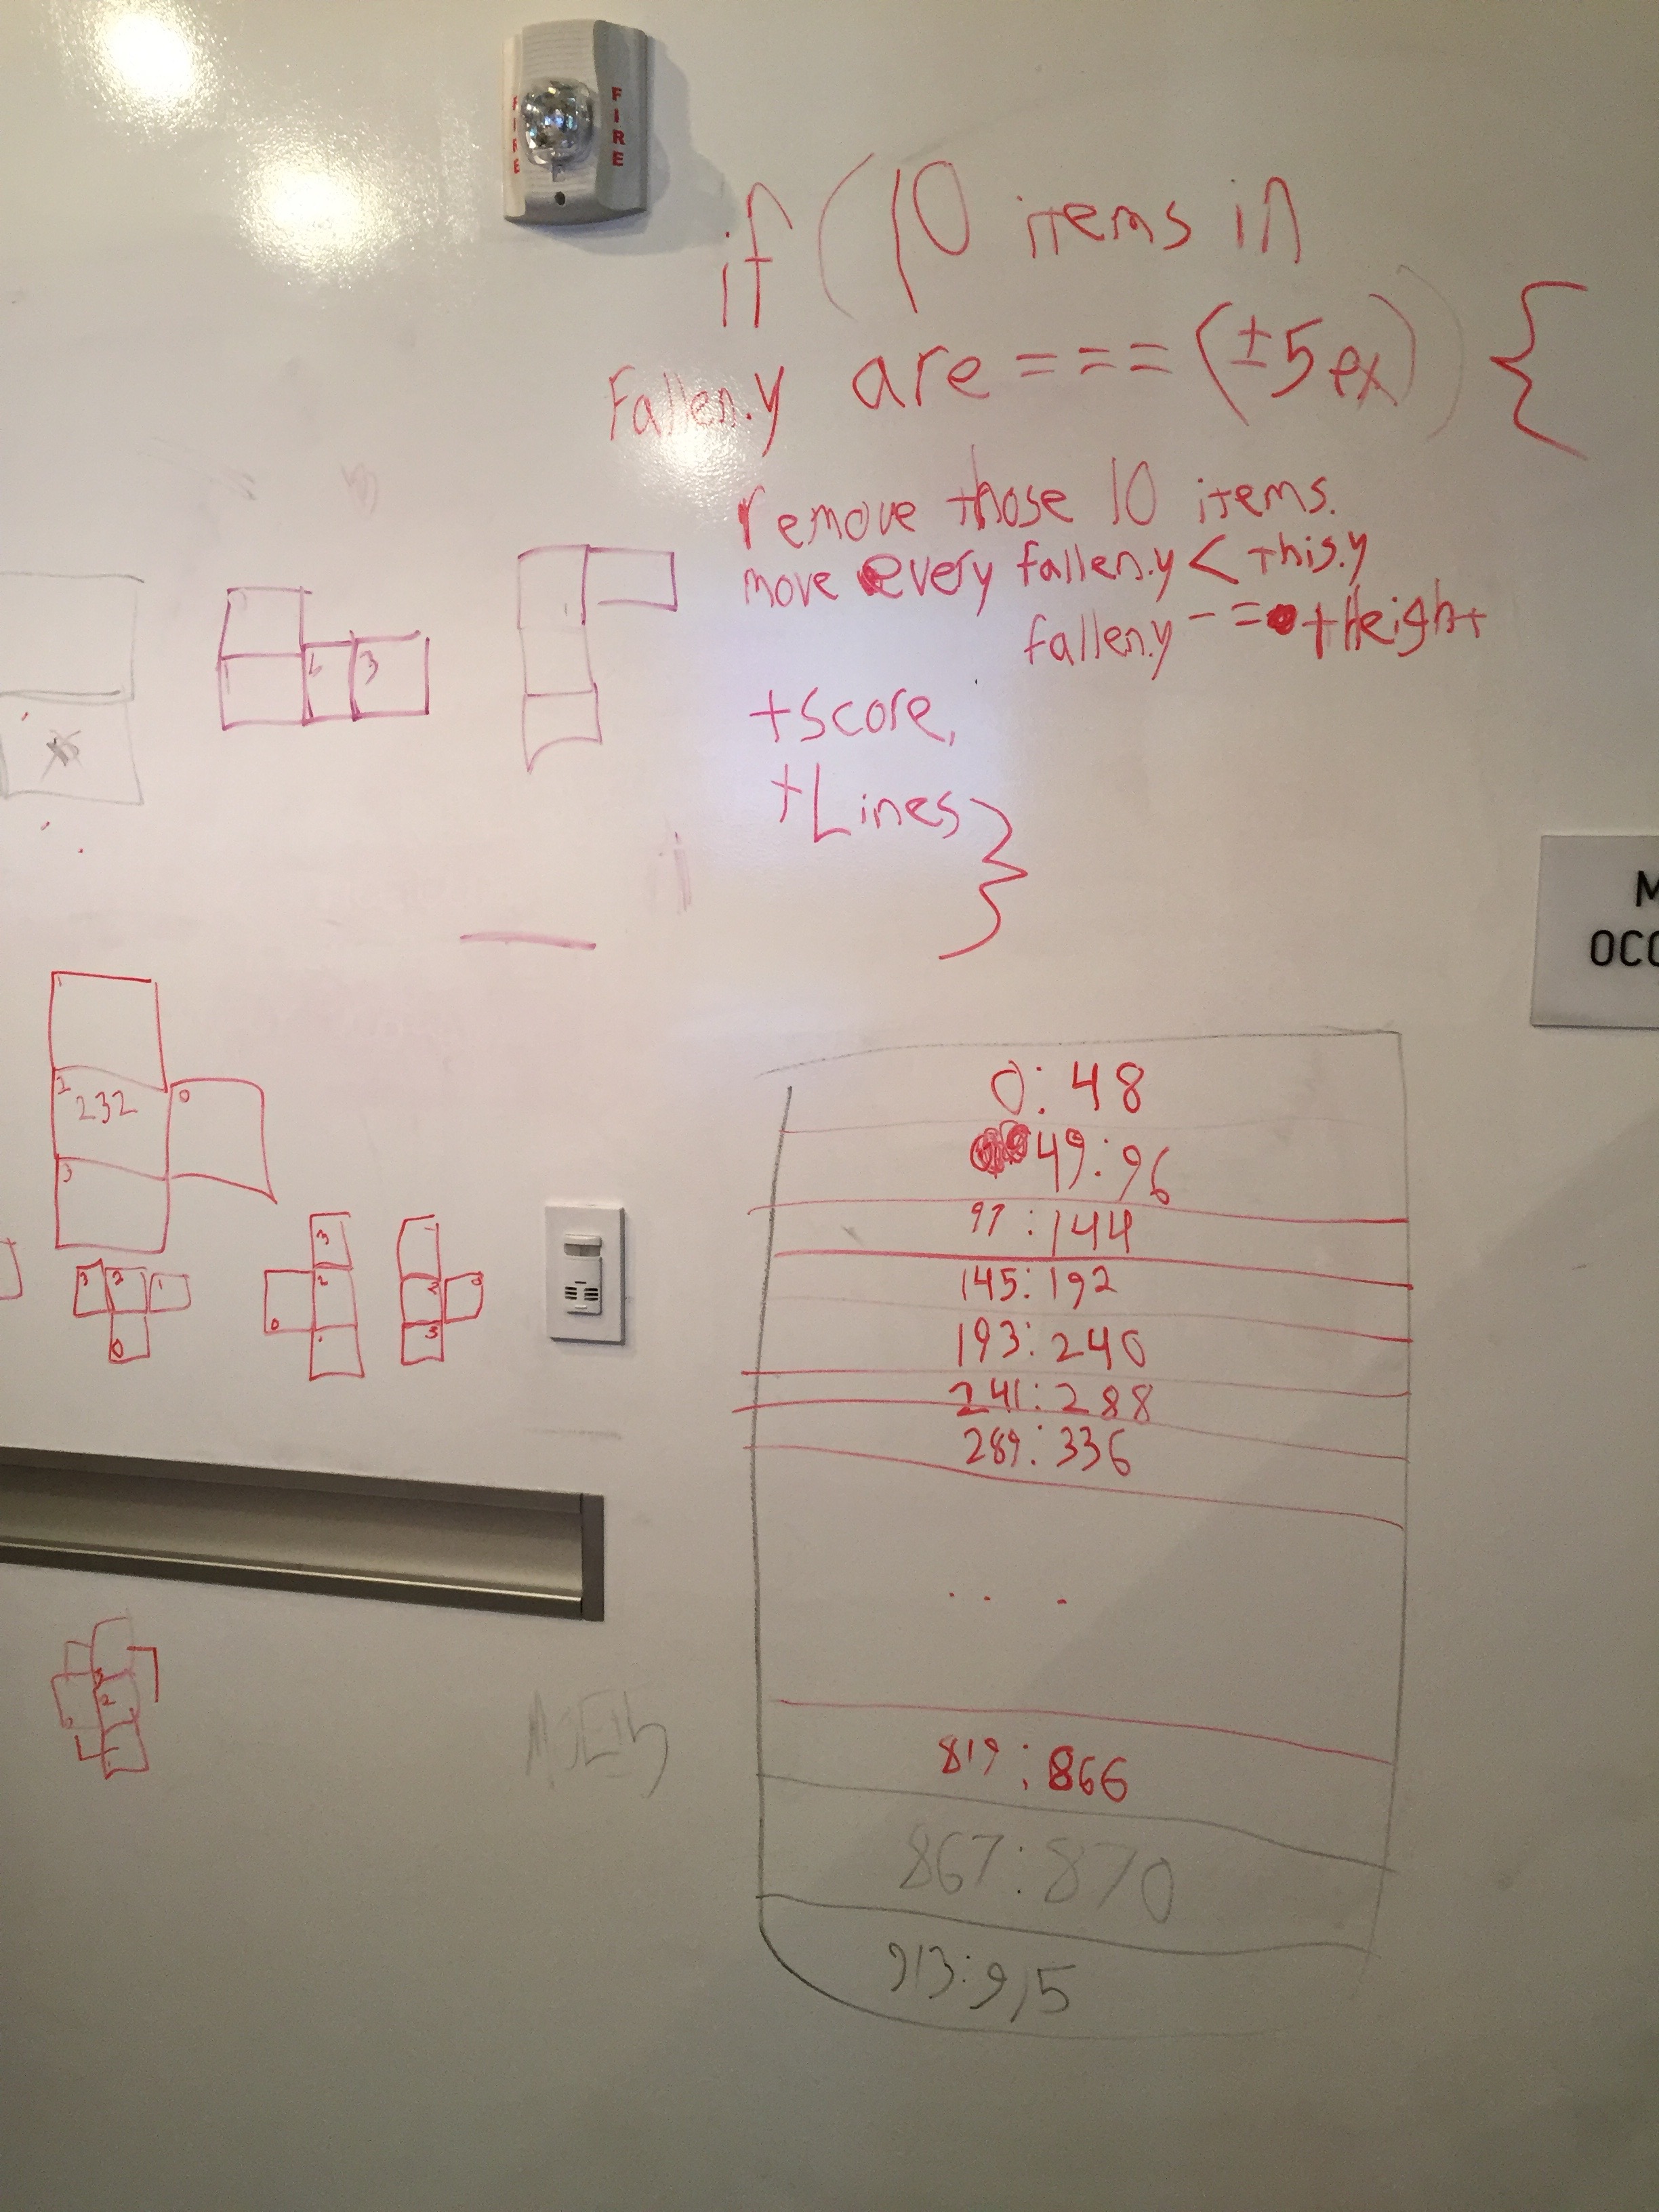 FIRE
FIRE
if (10 items in
Fallen.y are === (±5 ex)) {
remove those 10 items.
move every fallen.y < this.y
fallen.y -= tHeight
+score,
+Lines }
1 3
2 232 0
3
3 2 1
0
3
2
0
2 0
3
2
M
OCC
0:48
49:96
97:144
145:192
193:240
241:288
289:336
...
819:866
867:870
913:915